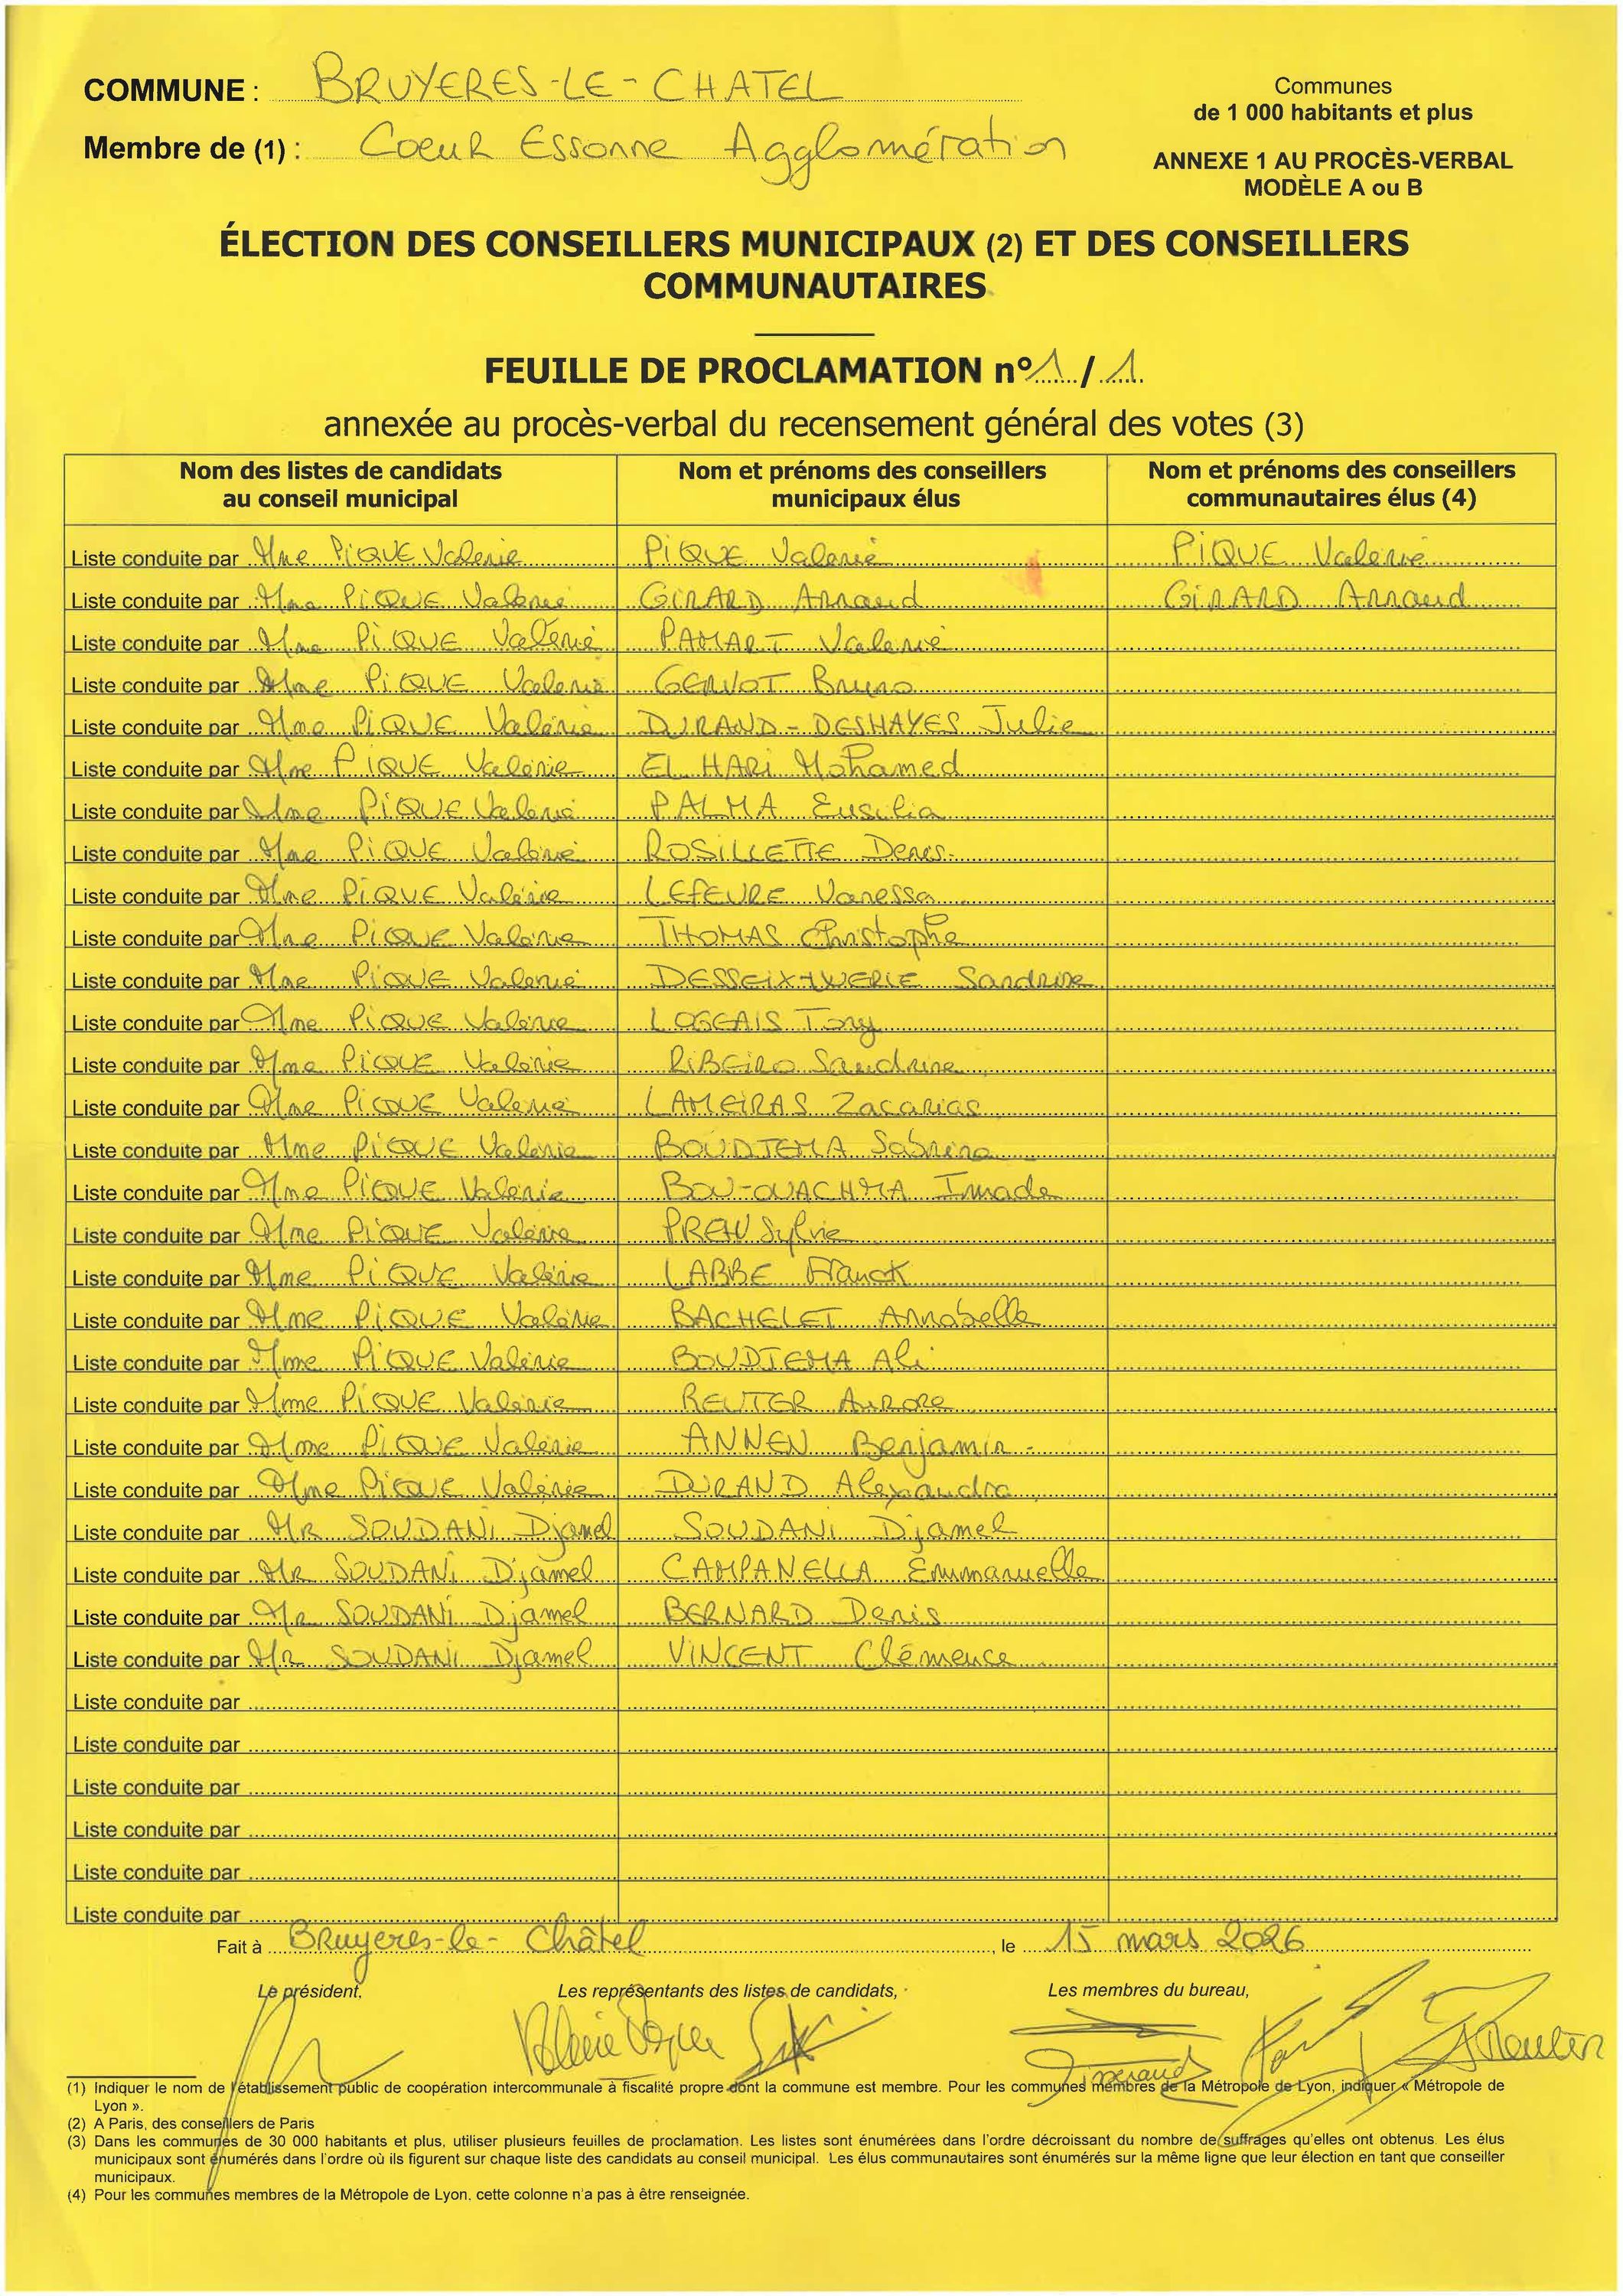 COMMUNE : BRUYERES-LE-CHATEL
Membre de (1) : Coeur Essonne Agglomération
Communes
de 1 000 habitants et plus
ANNEXE 1 AU PROCÈS-VERBAL
MODÈLE A ou B
ÉLECTION DES CONSEILLERS MUNICIPAUX (2) ET DES CONSEILLERS
COMMUNAUTAIRES
FEUILLE DE PROCLAMATION n° 1 / 1
annexée au procès-verbal du recensement général des votes (3)
Nom des listes de candidats au conseil municipal | Nom et prénoms des conseillers municipaux élus | Nom et prénoms des conseillers communautaires élus (4)
Liste conduite par Mme PIQUE Valerie PIQUE Valerie PIQUE Valerie
Liste conduite par Mme PIQUE Valerie GIRARD Arnaud GIRARD Arnaud
Liste conduite par Mme PIQUE Valérie PAMART Valerie
Liste conduite par Mme PIQUE Valerie GERVOT Bruno
Liste conduite par Mme PIQUE Valérie DURAND-DESHAYES Julie
Liste conduite par Mme PIQUE Valérie EL HARI Mohamed
Liste conduite par Mme PIQUE Valerie PALMA Eusilia
Liste conduite par Mme PIQUE Valérie ROSILLETTE Denis
Liste conduite par Mme PIQUE Valérie LEFEVRE Vanessa
Liste conduite par Mme PIQUE Valérie THOMAS Christophe
Liste conduite par Mme PIQUE Valerie Sandrine
Liste conduite par Mme PIQUE Valérie LOGEAIS Tony
Liste conduite par Mme PIQUE Valérie RIBEIRO Sandrine
Liste conduite par Mme PIQUE Valerie LAMEIRAS Zacarias
Liste conduite par Mme PIQUE Valerie BOUDJEMA Sabrina
Liste conduite par Mme PIQUE Valérie BOU-OUACHMA Imade
Liste conduite par Mme PIQUE Valérie Sylvie
Liste conduite par Mme PIQUE Valérie LABBE Franck
Liste conduite par Mme PIQUE Valérie BACHELET Annabelle
Liste conduite par Mme PIQUE Valérie BOUDJEMA Ali
Liste conduite par Mme PIQUE Valérie REUTER Aurore
Liste conduite par Mme PIQUE Valérie ANNEN Benjamin
Liste conduite par Mme PIQUE Valérie DURAND Alexandra
Liste conduite par MR SOUDANI Djamel SOUDANI Djamel
Liste conduite par MR SOUDANI Djamel CAMPANELLA Emmanuelle
Liste conduite par MR SOUDANI Djamel BERNARD Denis
Liste conduite par MR SOUDANI Djamel VINCENT Clémence
Liste conduite par
Liste conduite par
Liste conduite par
Liste conduite par
Liste conduite par
Liste conduite par
Fait à Bruyeres-le-Châtel, le 15 mars 2026
Le président, Les représentants des listes de candidats, Les membres du bureau,
(1) Indiquer le nom de l'établissement public de coopération intercommunale à fiscalité propre dont la commune est membre. Pour les communes membres de la Métropole de Lyon, indiquer « Métropole de
Lyon ».
(2) A Paris, des conseillers de Paris
(3) Dans les communes de 30 000 habitants et plus, utiliser plusieurs feuilles de proclamation. Les listes sont énumérées dans l'ordre décroissant du nombre de suffrages qu'elles ont obtenus. Les élus
municipaux sont énumérés dans l'ordre où ils figurent sur chaque liste des candidats au conseil municipal. Les élus communautaires sont énumérés sur la même ligne que leur élection en tant que conseiller
municipaux.
(4) Pour les communes membres de la Métropole de Lyon, cette colonne n'a pas à être renseignée.